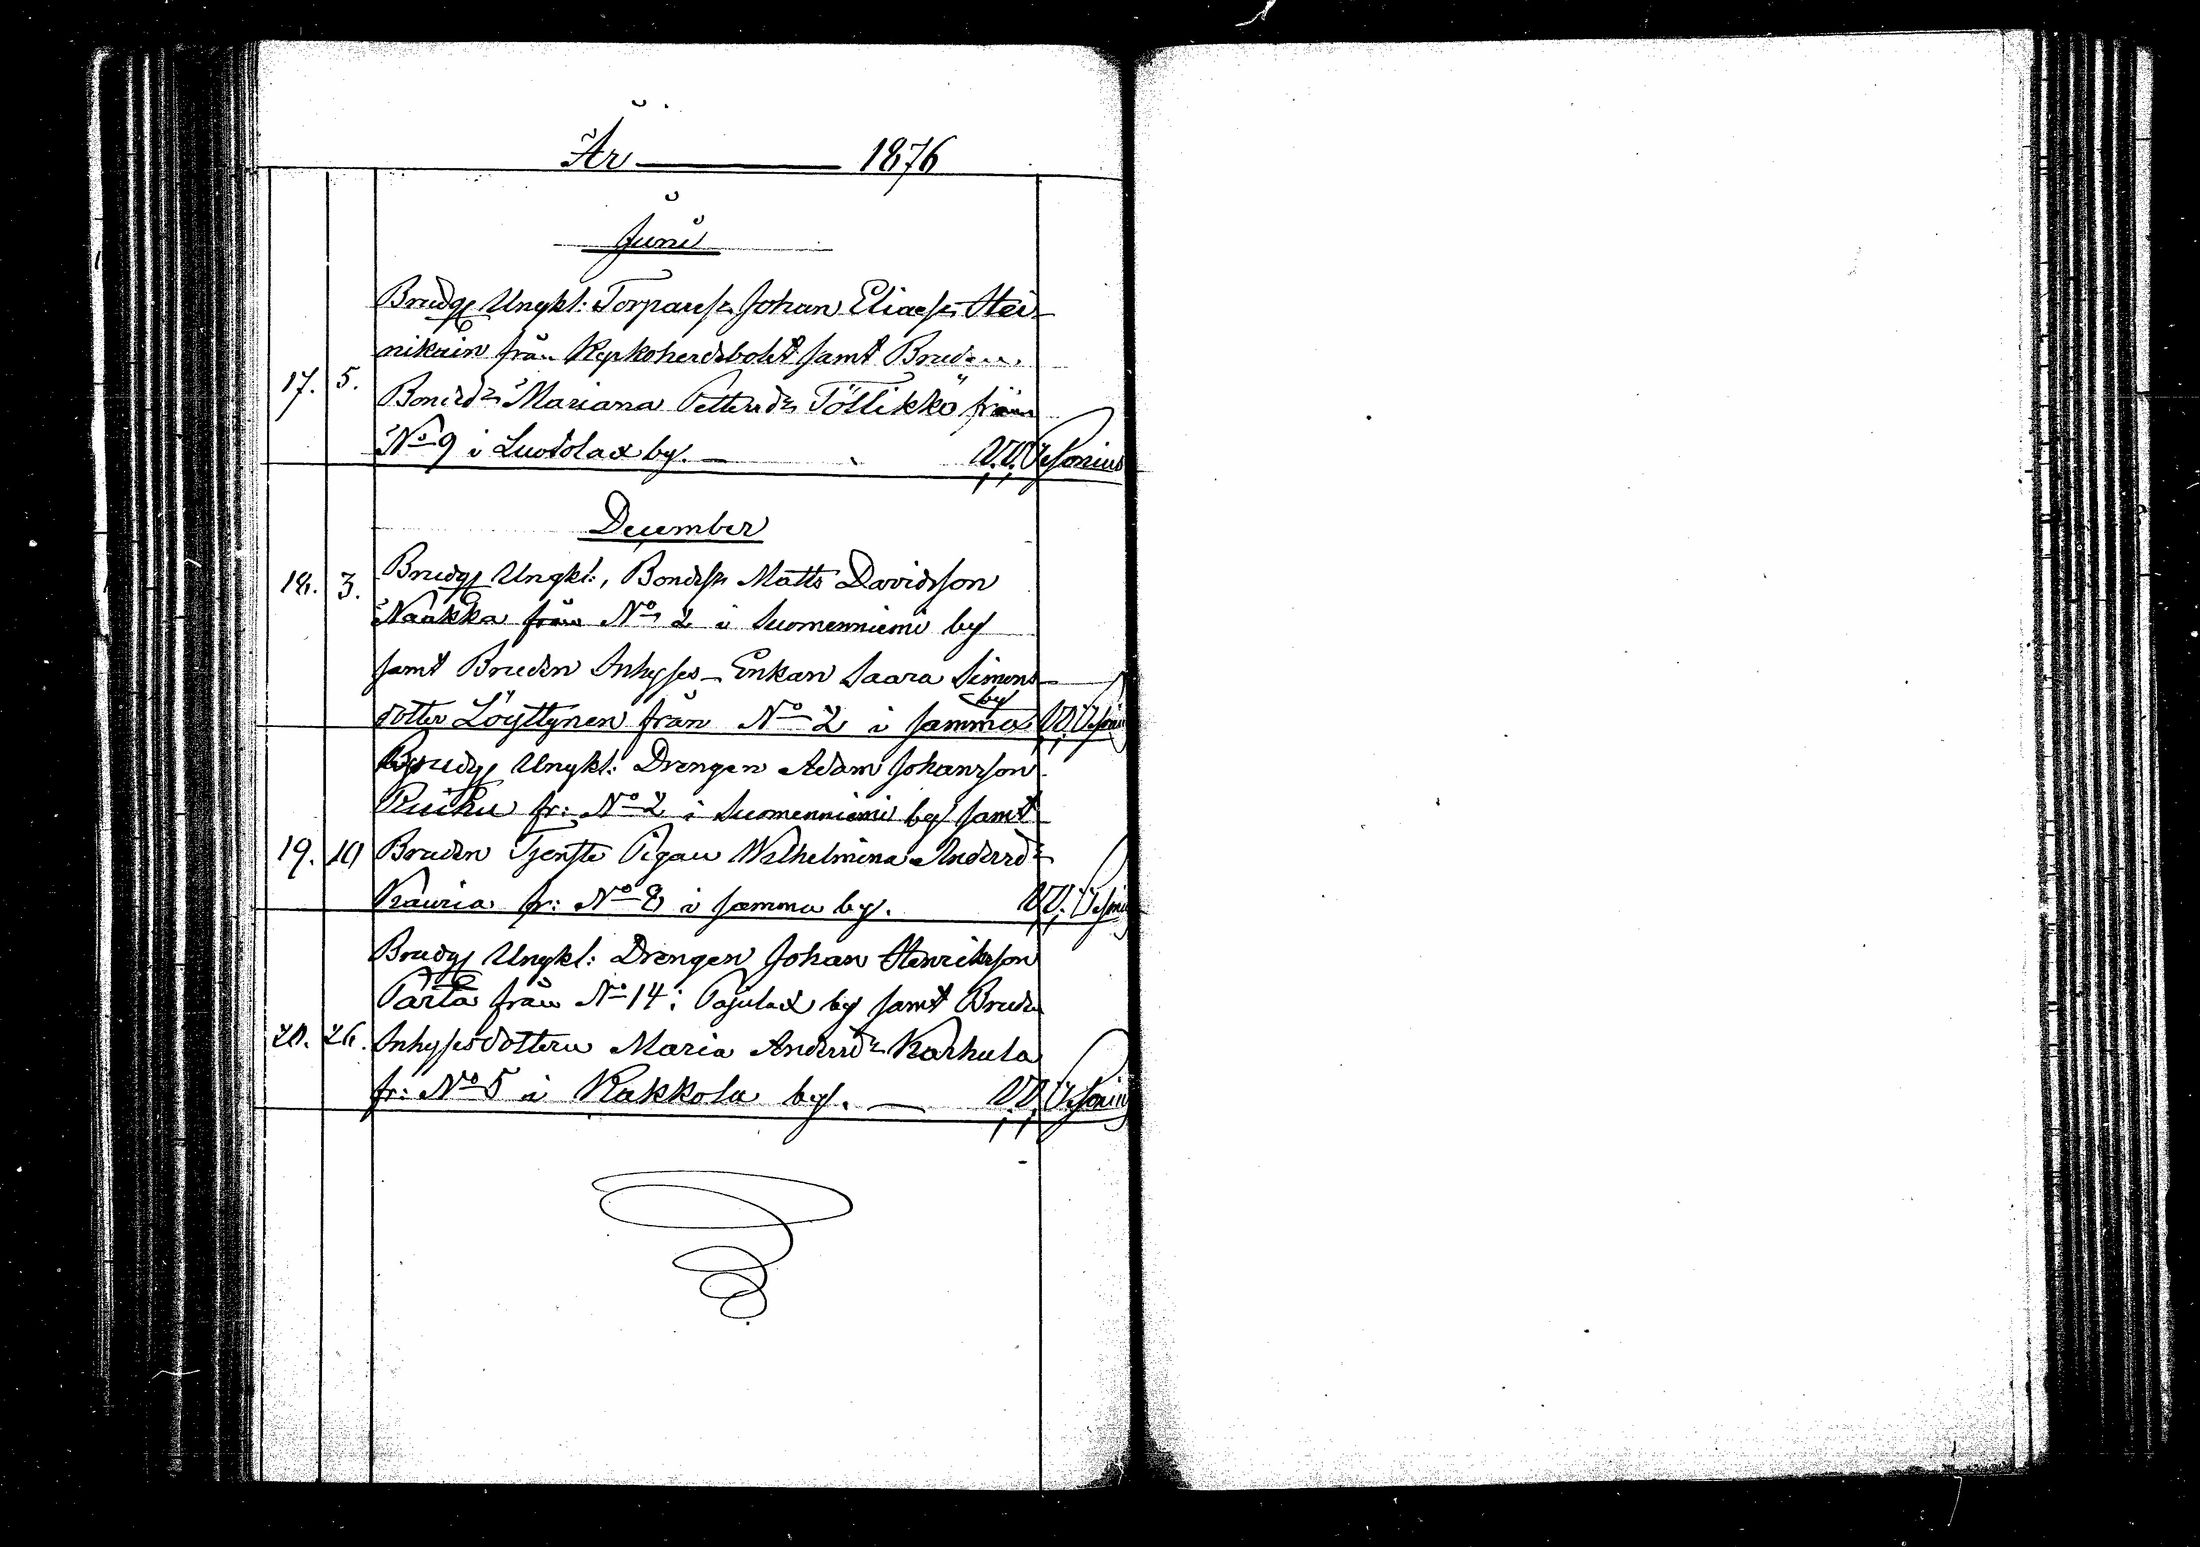 År 1876
Juni
Brudg Ungkl: Torpares: Johan Eliass: Hei-
nikain från Kyrkoherdsbolet samt Bruden
17. 5. Bonded: Mariana Petterd: Töttikkö från
No 9 i Luotolax by. V.V. Vesonius
December
18. 3. Brudg Ungkl:, Bondes: Matts Davidsson
Naakka från No 2 i Suomenniemi by
samt Bruden Inhyses-Enkan Saara Simons
by
dotter Löyttynen från No 2 i samma V.V. Vesonius
Brudg Ungkl: Drengen Adam Johansson
fr: No 2 i Suomenniemi by samt
19. 10 Bruden Tjenste Pigan Wilhelmina Andersd:
Kauria fr: No 8 i samma by. V.V. Vesonius
Brudg Ungkl: Drengen Johan Henriksson
Pärtä från No 14 i Pajulax by samt Bruden
20. 26. Inhysesdottern Maria Andersd: Karhula
fr: No 5 i Kakkola by. V.V. Vesonius